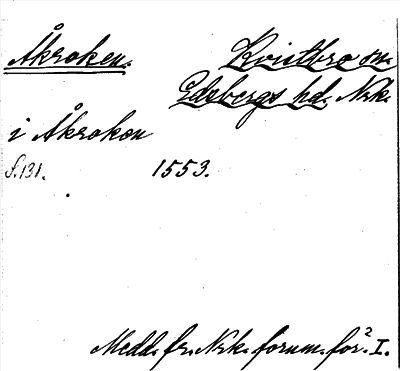 Åkroken. Kvistbro sn.
Edsbergs hd. Nrk.
i Åkroken
s. 131. 1553.
Medd. fr. Nrk. fornm. för² I.